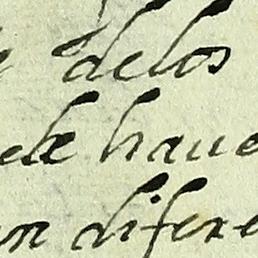 delos
ele haue
n difere